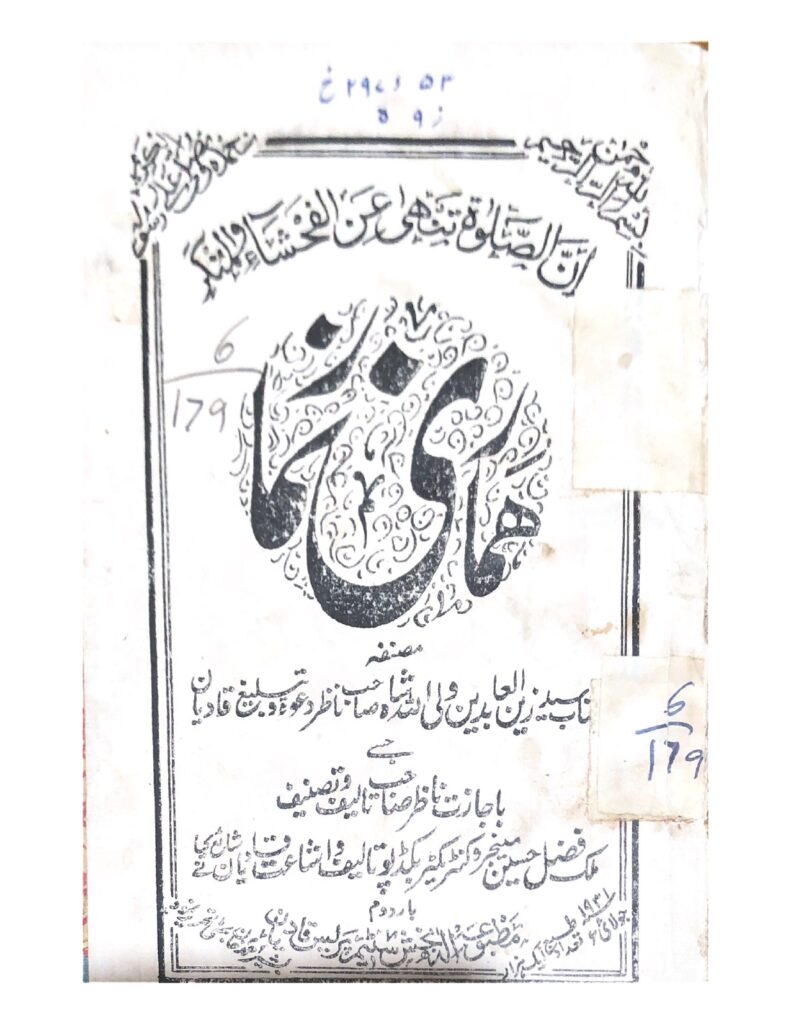 ۲۹۷ء۵۳ خ
ز و ہ
بسم اللہ الرحمن الرحیم
نحمدہ ونصلی علی رسولہ
اِنَّ الصَّلٰوۃَ تَنْهٰی عَنِ الْفَحْشَآءِ وَالْمُنْکَرِ
6
179
ہماری نماز
مصنفہ
سید زین العابدین ولی اللہ شاہ صاحب ناظر دعوۃ و تبلیغ قادیان
جسے
باجازت ناظر صاحب تالیف و تصنیف
ملک فضل حسین منیجر و کنٹریکٹر بکڈپو تالیف و اشاعت قادیان نے شائع کیا
6
179
بار دوم
جولائی ۱۹۳۱ء
تعداد ایک ہزار
مطبوعہ اللہ بخش سٹیم پریس قادیان